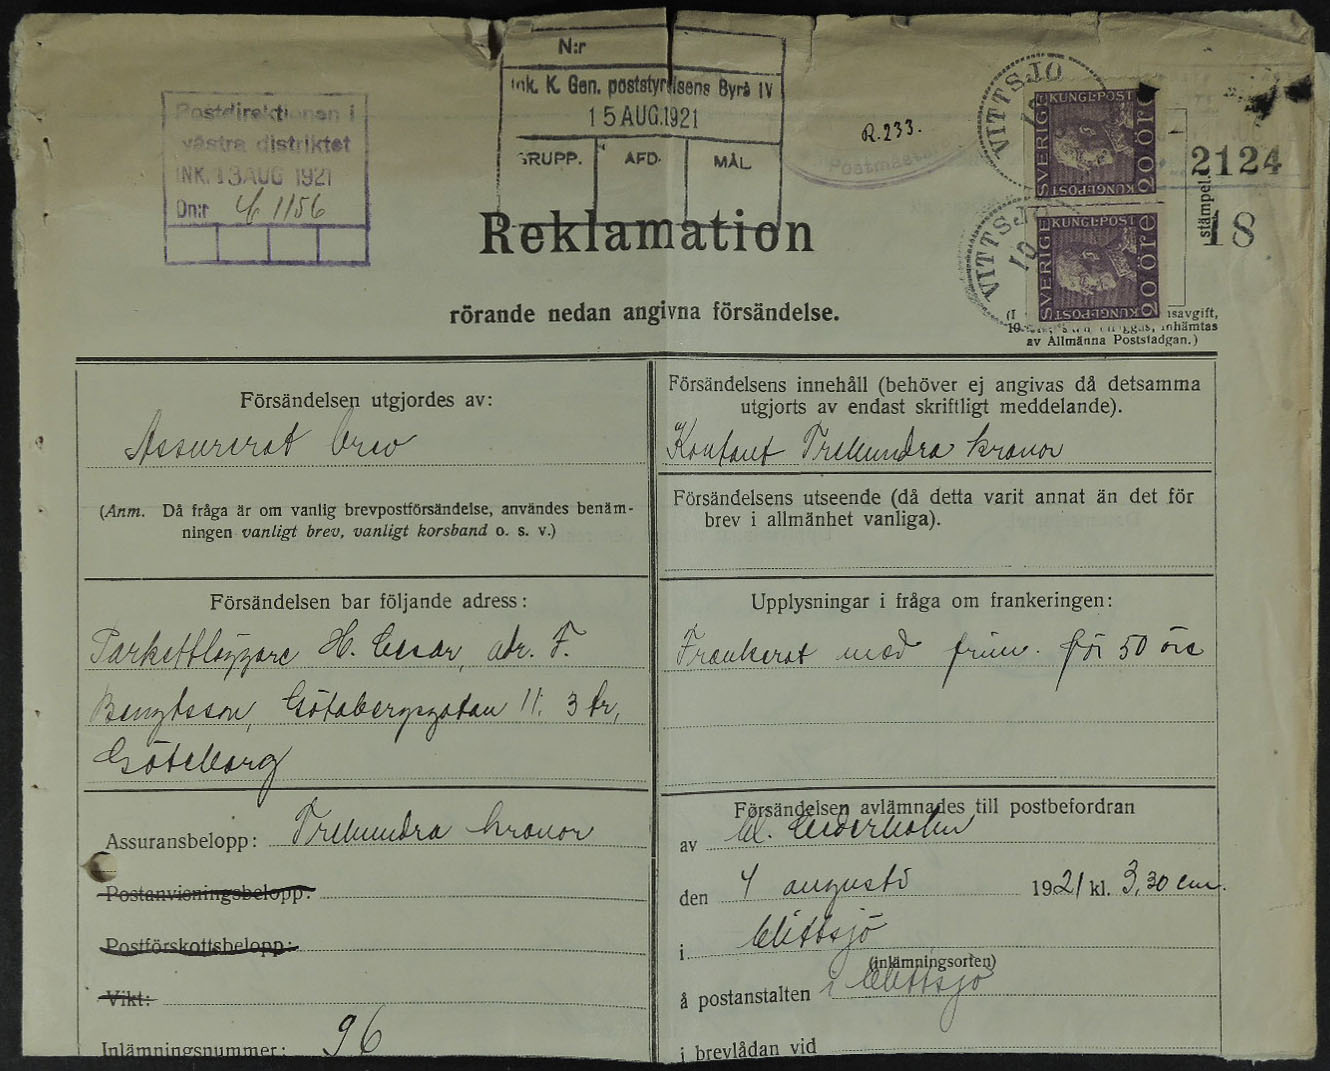 N:r
Ink. K. Gen. poststyrelsens Byrå IV
15 AUG.1921
GRUPP. AFD. MÅL
Postdirektionen i
västra distriktet
INK. 13 AUG 1921
Dn:r 1156
R.233.
Postmästaren
VITTSJÖ
10
SVERIGE KUNGL·POST 20 ÖRE
KUNGL·POST
VITTSJÖ
10
SVERIGE KUNGL·POST 20 ÖRE
KUNGL·POST
2124
stämpel.
18
Reklamation
rörande nedan angivna försändelse.
(I
savgift,
inhämtas
av Allmänna Poststadgan.)
Försändelsen utgjordes av:
Assurerat brev
(Anm. Då fråga är om vanlig brevpostförsändelse, användes benäm-
ningen vanligt brev, vanligt korsband o. s. v.)
Försändelsens innehåll (behöver ej angivas då detsamma
utgjorts av endast skriftligt meddelande).
Kontant Trehundra kronor
Försändelsens utseende (då detta varit annat än det för
brev i allmänhet vanliga).
Försändelsen bar följande adress:
Parkettläggare H. Cesar, adr. F.
Bengtsson, Götabergsgatan 11. 3 tr,
Göteborg
Upplysningar i fråga om frankeringen:
Frankerat med frim. för 50 öre
Assuransbelopp: Trehundra kronor
Postanvisningsbelopp:
Postförskottsbelopp:
Vikt:
Inlämningsnummer: 96
Försändelsen avlämnades till postbefordran
av Cederholm
den 4 augusti 1921 kl. 3,30 em.
i Vittsjö
(inlämningsorten)
å postanstalten i Vittsjö
i brevlådan vid